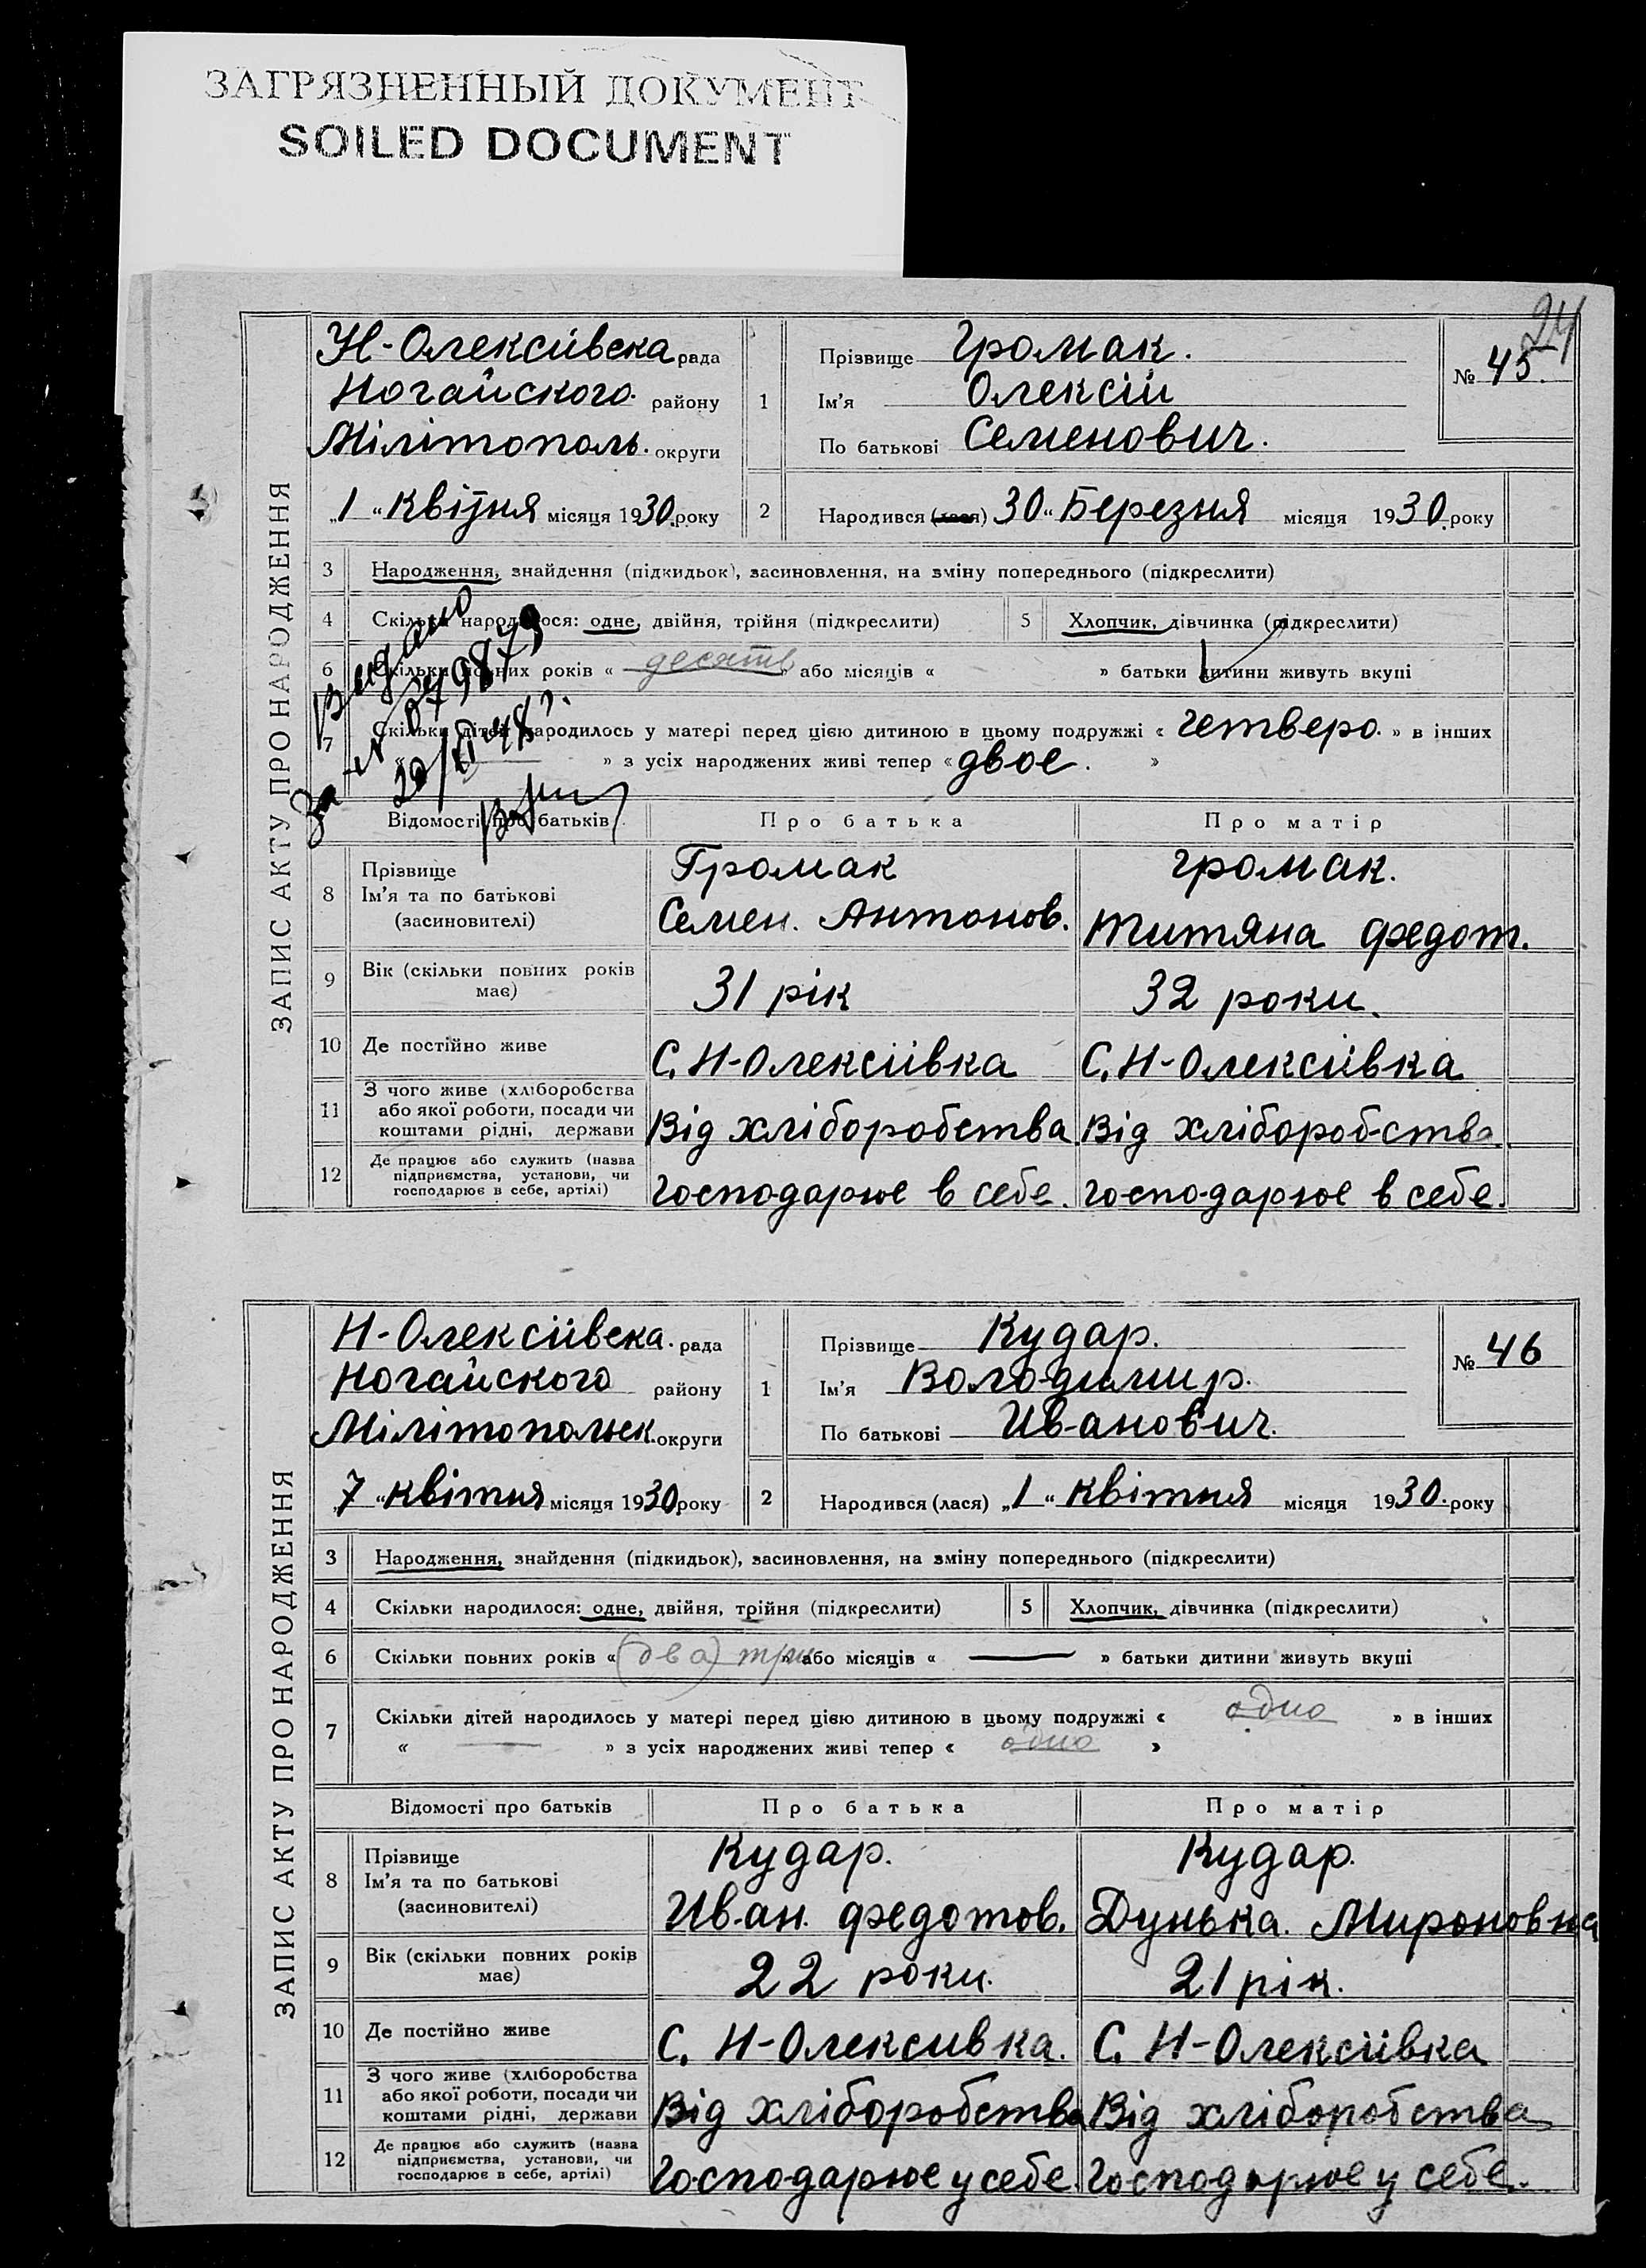 ЗАГРЯЗНЕННЫЙ ДОКУМЕНТ
SOILED DOCUMENT
24
ЗАПИС АКТУ ПРО НАРОДЖЕННЯ
Н-Олексіївска рада
Ногайского району
Мілітополь. округи
„1“ Квітня місяця 1930 року
1 Прізвище Громак.
Ім'я Олексій
По батькові Семенович.
№ 45.
2 Народився (лася) 30“ Березня місяця 1930. року
3 Народження, знайдення (підкидьок), засиновлення, на зміну попереднього (підкреслити)
4 Скільки народилося: одне, двійня, трійня (підкреслити) 5 Хлопчик, дівчинка (підкреслити)
6 Скільки повних років « десять » або місяців « » батьки дитини живуть вкупі
7 Скільки дітей народилось у матері перед цією дитиною в цьому подружжі « четверо. » в інших
« » з усіх народжених живі тепер « двое. »
Видано
Відомості про батьків Про батька Про матір
8 Прізвище Громак Громак.
Ім'я та по батькові Семен. Антонов. Титяна Федот.
(засиновителі)
9 Вік (скільки повних років має) 31 рік 32 роки.
10 Де постійно живе С. Н-Олексіївка С. Н-Олексіївка
11 З чого живе (хліборобства
або якої роботи, посади чи
коштами рідні, держави Від хліборобства Від хлібороб-ства.
12 Де працює або служить (назва
підприємства, установи, чи
господарює в себе, артілі) Господарює в себе. Господарює в себе.
ЗАПИС АКТУ ПРО НАРОДЖЕННЯ
Н-Олексіївска. рада
Ногайского району
Мілітопольск. округи
„7“ Квітня місяця 1930 року
1 Прізвище Кудар.
Ім'я Володимир.
По батькові Иванович.
№ 46
2 Народився (лася) „1“ Квітня місяця 1930. року
3 Народження, знайдення (підкидьок), засиновлення, на зміну попереднього (підкреслити)
4 Скільки народилося: одне, двійня, трійня (підкреслити) 5 Хлопчик, дівчинка (підкреслити)
6 Скільки повних років « (два) три » або місяців « — » батьки дитини живуть вкупі
7 Скільки дітей народилось у матері перед цією дитиною в цьому подружжі « одно » в інших
« — » з усіх народжених живі тепер « одно »
Відомості про батьків Про батька Про матір
8 Прізвище Кудар. Кудар.
Ім'я та по батькові Иван. Федотов. Дунька. Мироновна
(засиновителі)
9 Вік (скільки повних років має) 22 роки. 21 рік.
10 Де постійно живе С. Н-Олексивка. С. Н-Олексіївка
11 З чого живе (хліборобства
або якої роботи, посади чи
коштами рідні, держави Від хліборобства Від хліборобства
12 Де працює або служить (назва
підприємства, установи, чи
господарює в себе, артілі) Господарює у себе. Господарює у себе.